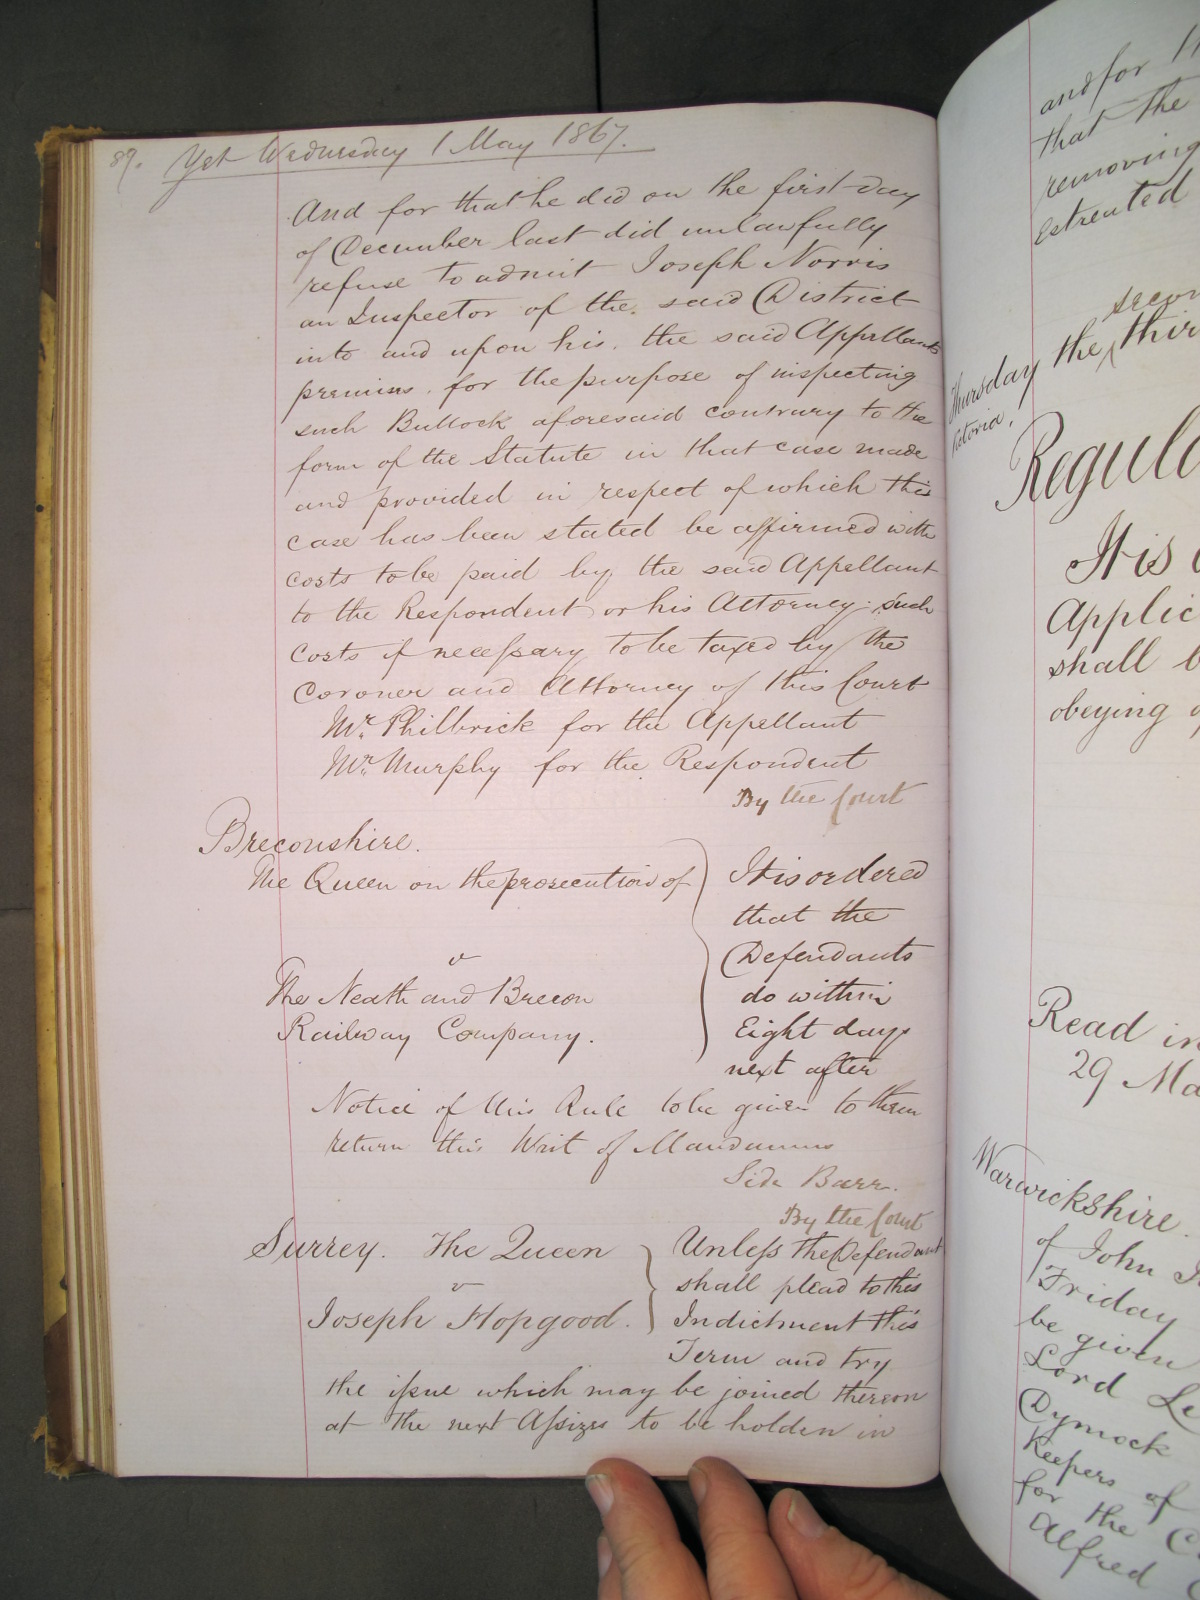 89. Yet Wednesday 1 May 1867.
And for that he did on the first day
of December last did unlawfully
refuse to admit Joseph Norris
an Inspector of the said District
into and upon his, the said Appellants
premises, for the purpose of inspecting
such Bullock aforesaid contrary to the
form of the Statute in that case made
and provided in respect of which this
case has been stated be affirmed with
costs to be paid by the said Appellant
to the Respondent or his Attorney such
costs if necessary to be taxed by the
Coroner and Attorney of this Court
Mr. Philbrick for the Appellant
Mr. Murphy for the Respondent
By the Court
Breconshire.
The Queen on the prosecution of
v
The Neath and Brecon
Railway Company.
It is ordered
that the
Defendants
do within
Eight days
next after
Notice of this Rule to be given to them
return this Writ of Mandamus
Side Barr.
By the Court
Surrey. The Queen
v
Joseph Hopgood.
Unless the Defendant
shall plead to this
Indictment this
Term and try
the issue which may be joined thereon
at the next Assizes to be holden in
and for
that the
removing
Estreated
Thursday the secon thir
Victoria.
Regula
It is
Applic
shall b
obeying
Read in
29 Ma
Warwickshire.
of John
Friday
be given
Lord Le
Dymock
Keepers of
for the C
Alfred